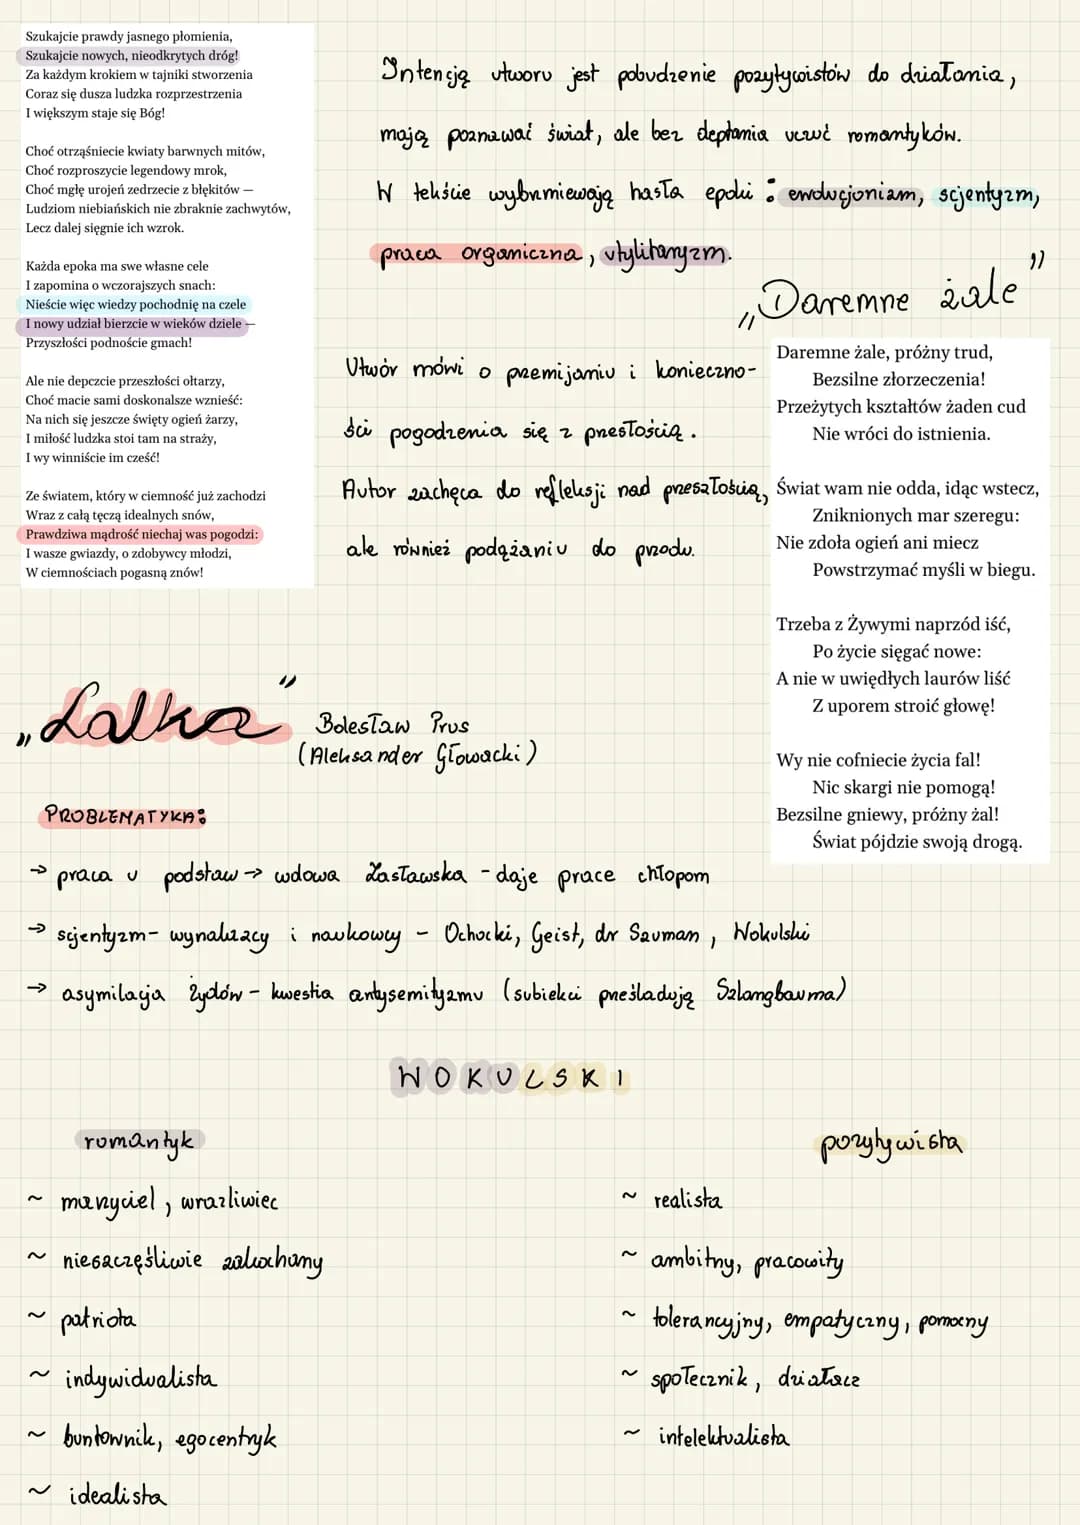 Szukajcie prawdy jasnego płomienia,
Szukajcie nowych, nieodkrytych dróg!
Za każdym krokiem w tajniki stworzenia
Coraz się dusza ludzka rozprzestrzenia
I większym staje się Bóg!
Choć otrząśniecie kwiaty barwnych mitów,
Choć rozproszycie legendowy mrok,
Choć mgłę urojeń zedrzecie z błękitów —
Ludziom niebiańskich nie zbraknie zachwytów,
Lecz dalej sięgnie ich wzrok.
Każda epoka ma swe własne cele
I zapomina o wczorajszych snach:
Nieście więc wiedzy pochodnię na czele
I nowy udział bierzcie w wieków dziele —
Przyszłości podnoście gmach!
Ale nie depczcie przeszłości ołtarzy,
Choć macie sami doskonalsze wznieść:
Na nich się jeszcze święty ogień żarzy,
I miłość ludzka stoi tam na straży,
I wy winniście im cześć!
Ze światem, który w ciemność już zachodzi
Wraz z całą tęczą idealnych snów,
Prawdziwa mądrość niechaj was pogodzi:
I wasze gwiazdy, o zdobywcy młodzi,
W ciemnościach pogasną znów!
Intencją utworu jest pobudzenie pozytywistów do działania,
mają poznawać świat, ale bez deptania uczuć romantyków.
W tekście wybrzmiewają hasła epoki: ewolucjonizm, scjentyzm,
praca organiczna, utylitaryzm.
„Daremne żale"
Utwór mówi o przemijaniu i konieczno-
ści pogodzenia się z przeszłością.
Autor zachęca do refleksji nad przeszłością,
ale również podążaniu do przodu.
Daremne żale, próżny trud,
Bezsilne złorzeczenia!
Przeżytych kształtów żaden cud
Nie wróci do istnienia.
Świat wam nie odda, idąc wstecz,
Zniknionych mar szeregu:
Nie zdoła ogień ani miecz
Powstrzymać myśli w biegu.
Trzeba z Żywymi naprzód iść,
Po życie sięgać nowe:
A nie w uwiędłych laurów liść
Z uporem stroić głowę!
Wy nie cofniecie życia fal!
Nic skargi nie pomogą!
Bezsilne gniewy, próżny żal!
Świat pójdzie swoją drogą.
„Lalka" Bolesław Prus
(Aleksander Głowacki)
PROBLEMATYKA:
→ praca u podstaw → wdowa Zasławska - daje prace chłopom
→ scjentyzm - wynalazcy i naukowcy - Ochocki, Geist, dr Szuman, Wokulski
→ asymilacja żydów - kwestia antysemityzmu (subiekci prześladują Szlangbauma)
WOKULSKI
romantyk
~ marzyciel, wrażliwiec
~ nieszczęśliwie zakochany
~ patriota
~ indywidualista
~ buntownik, egocentryk
~ idealista
pozytywista
~ realista
~ ambitny, pracowity
~ tolerancyjny, empatyczny, pomocny
~ społecznik, działacz
~ intelektualista